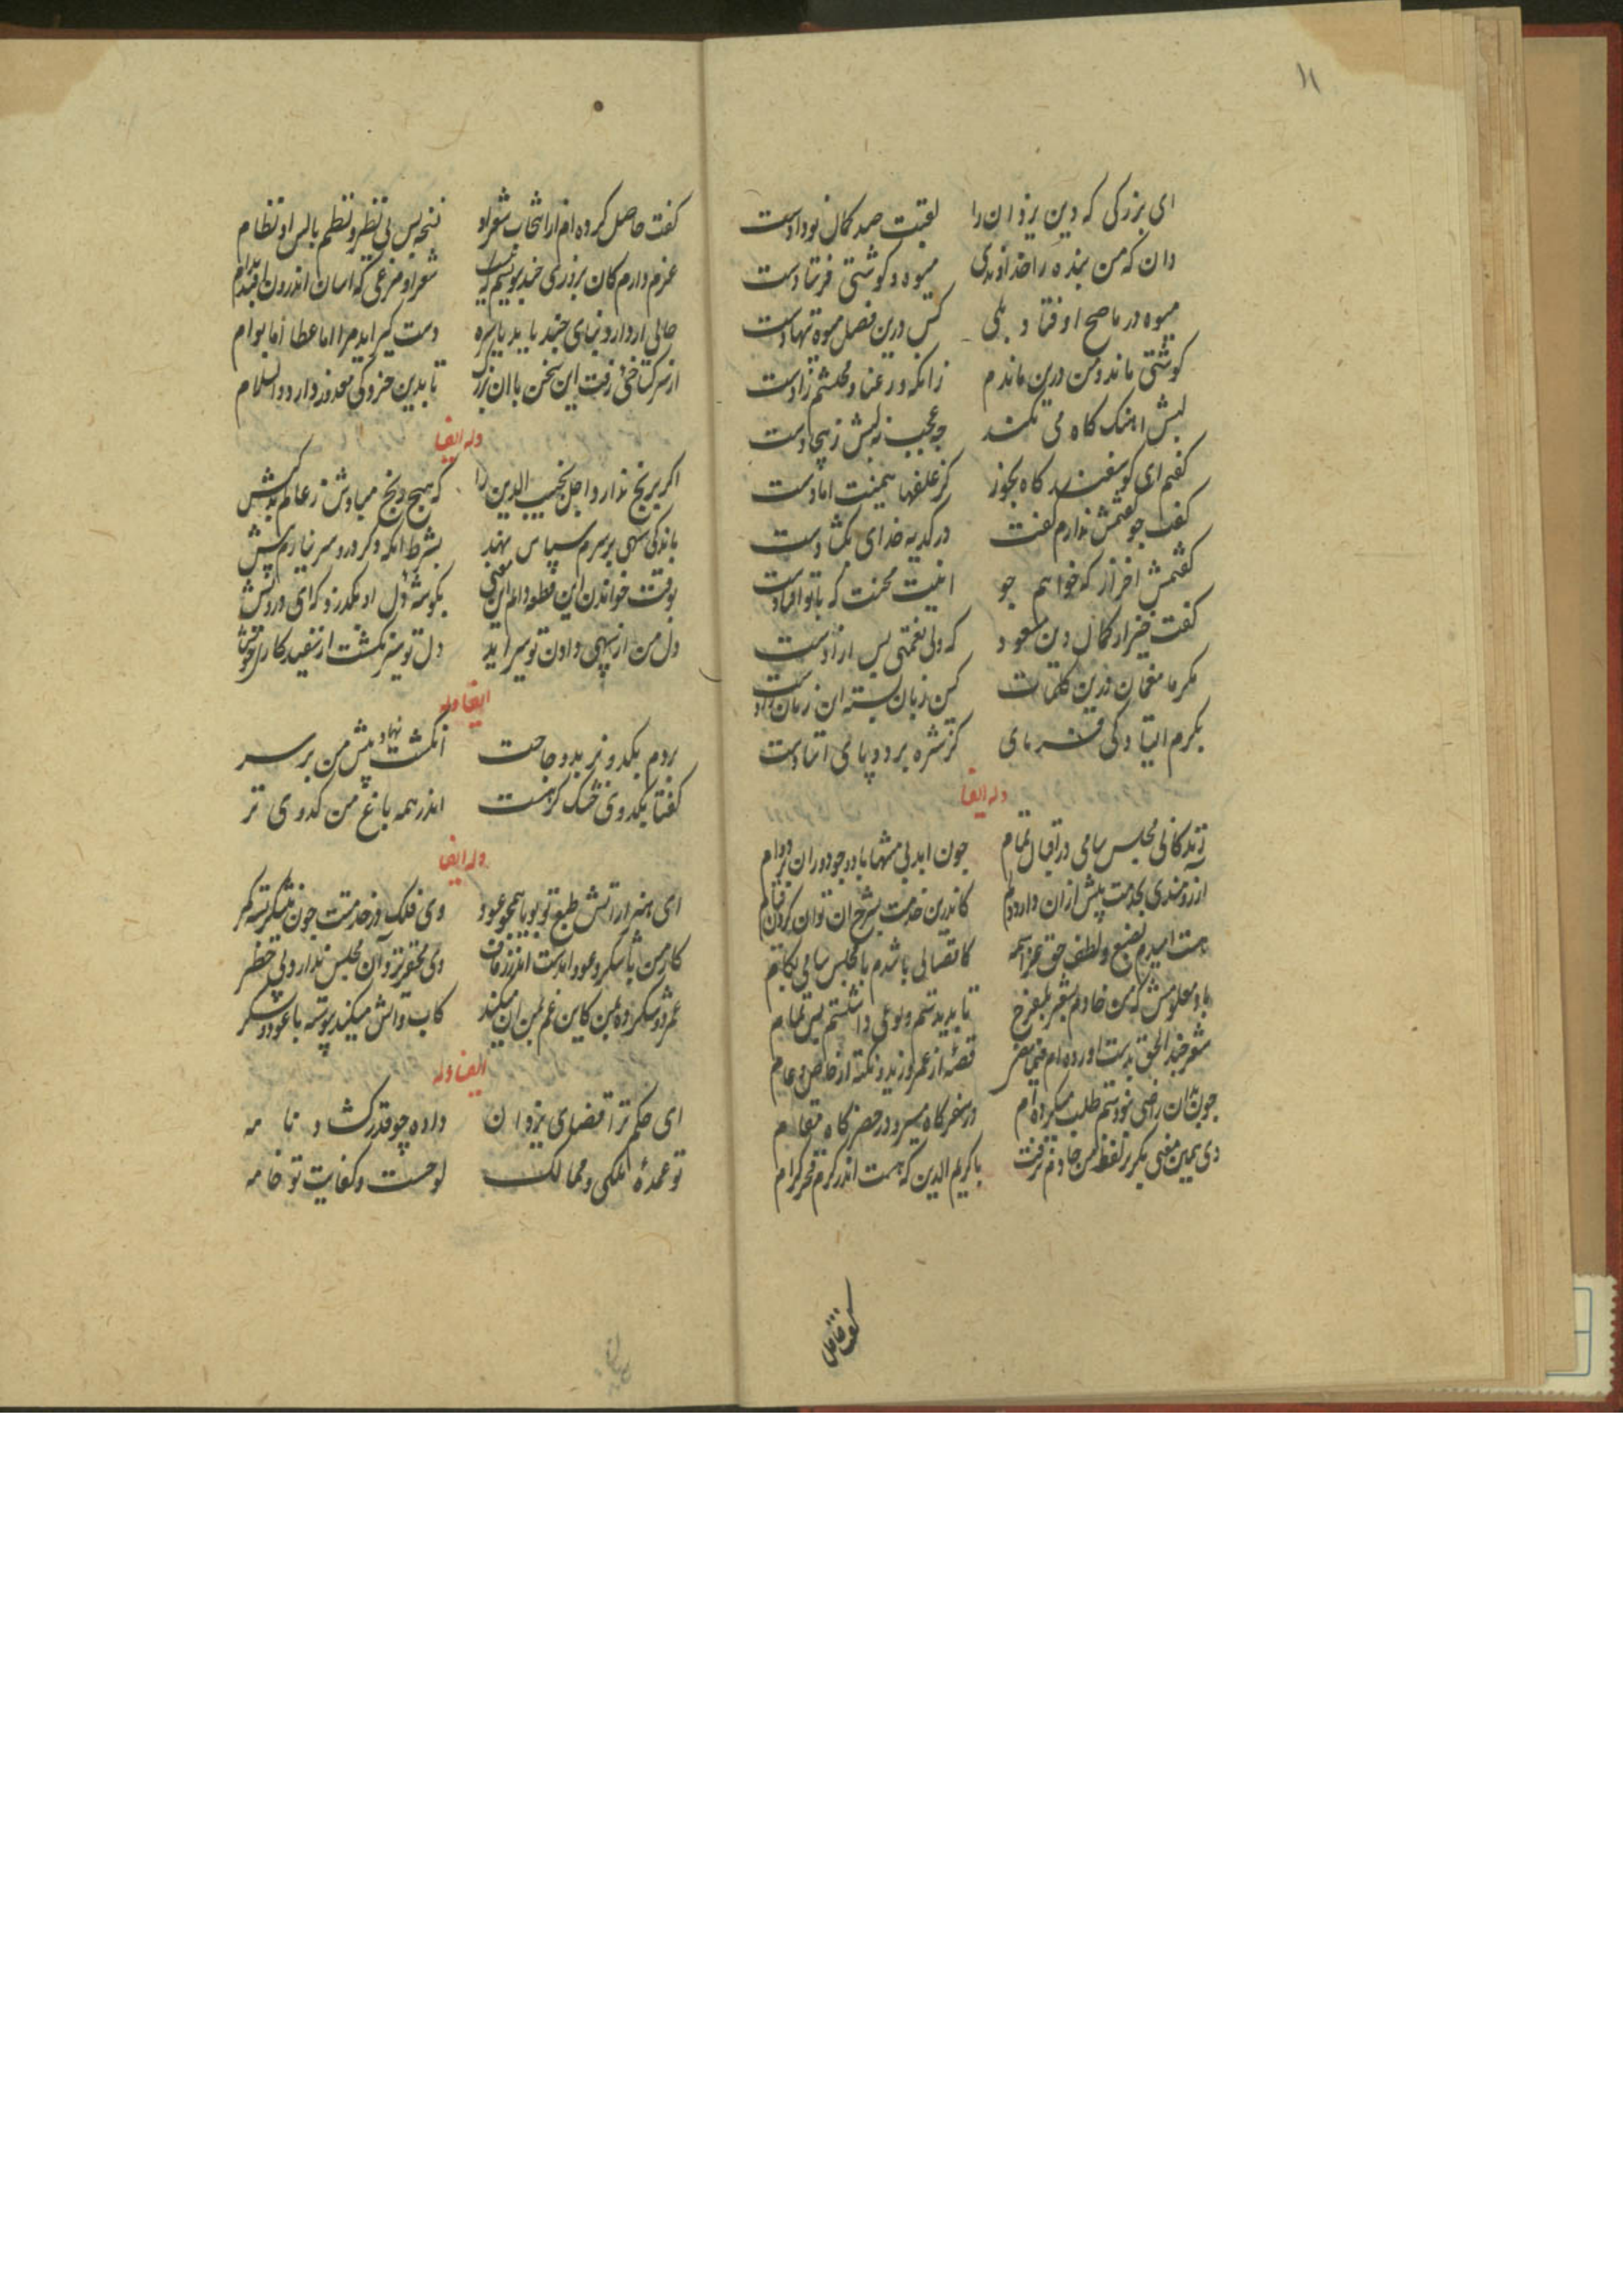 ای بزرکی که دین یزدان را لقبت صد کمال نو دادست
دان که من بنده را خداوندی میوه و کوشتی فرستادست
میوه در ما صح اوفتاد ولی کس درین فصل میوه ننهادست
کوشتی ماند و من درین ماندم زانکه رعنا و محتشم زادست
لبش اهنک کاه می نکند جه عجب نه لبش زبیجادست
کفتم ای کوسفند کاه بخور کز علفها همینت امادست
کفت جو کفتمش ندارم کفت در کدیه خدای بکشادست
کفتمش اخر از که خواهم جو اینت محنت که با تو افتادست
کفت خیز از کمال دین مسعود که ولی نعمتی بس ازادست
مکرما منعما درین کلمات کین زبان بسته این زمان دادست
بکرم التیاد کی فرمای کز شره بر دو پای استادست
وله ایضا
زندکانی مجلس سامی در اقبال تمام جون ابد بی منتها باد و جو دوران بردوام
ارزومندی بخدمت بیش ازان دارد دلم کاندرین خدمت بشرح ان توان کردن قیام
هست امیدم بصنع و لطف حق عز اسمه کاتصالی باشدم با مجلس سامی بکام
باد معلومش که من خادم بشعر بلفرج تا بدیدستم ولوعی داشتستم بس تمام
شعر جند الحق بدست اورده‌ام فیما مضی قصهٔ از عمرو و زید و نکته از خاص و عام
جون بدان راضی نبودستم طلب میکرده‌ام در سفر کاه مسیر و در حضر کاه مقام
دی همین معنی مکر بر لفظ من خادم برفت با کریم الدین که هست اندر کرم فخر کرام
کفت حاصل
کفت حاصل کرده‌ام از انتخاب شعر او نسخه بس بی نظیر و نظم بالس او نظام
عزم دارم کان بروزی جند بنویسم که نیست شعر او مرغی که اسان اندرون افتد بدام
حالی از دارو بنیای جند باید یابره دست کیر اید مرا اما عطا اما بوام
از سر کستاخی رفت این سخن با ان بزرک تا بدین جزوی معذور دارد والسلام
وله ایضا
اکر برنج ندارد اجل نجیب الدین را که هیج رنج مبادش ز عالم بدکیش
باندکی بنهی بر سرم سپاس نهند بشرط انکه دکر دردسر نیارم پیش
بوقت خواندن این قطعه دانم این معنی بکوشهٔ دل او بکذرد که ای درویش
دل من از نبهی دادن تو سیر اید دل تو سیر نکشت از سفید کاری خویش
ایضا وله
بردم بکدو بر بدو حاجت انکشت نهاد پیش من بر سر
کفتا بکدوی خشک کر هست اندر همه باغ من کدوی تر
وله ایضا
ای هنر از اتش طبع تو بویا همجو عود وی فلک در خدمت جون نیشکر بسته کمر
کار من با شکر و عود امدست اندر زفاف وی محقر نزد ان مجلس ندارد پی خطر
عمر دو شکر ده بمن کاین غم بمن ان میکند کاب و اتش میکند پیوسته با عود و شکر
ایضا وله
ای حکم ترا قضای یزدان داده چو قدر کشاد نامه
تو عمدهٔ ملکی و ممالک لوحست و کفایت تو خامه